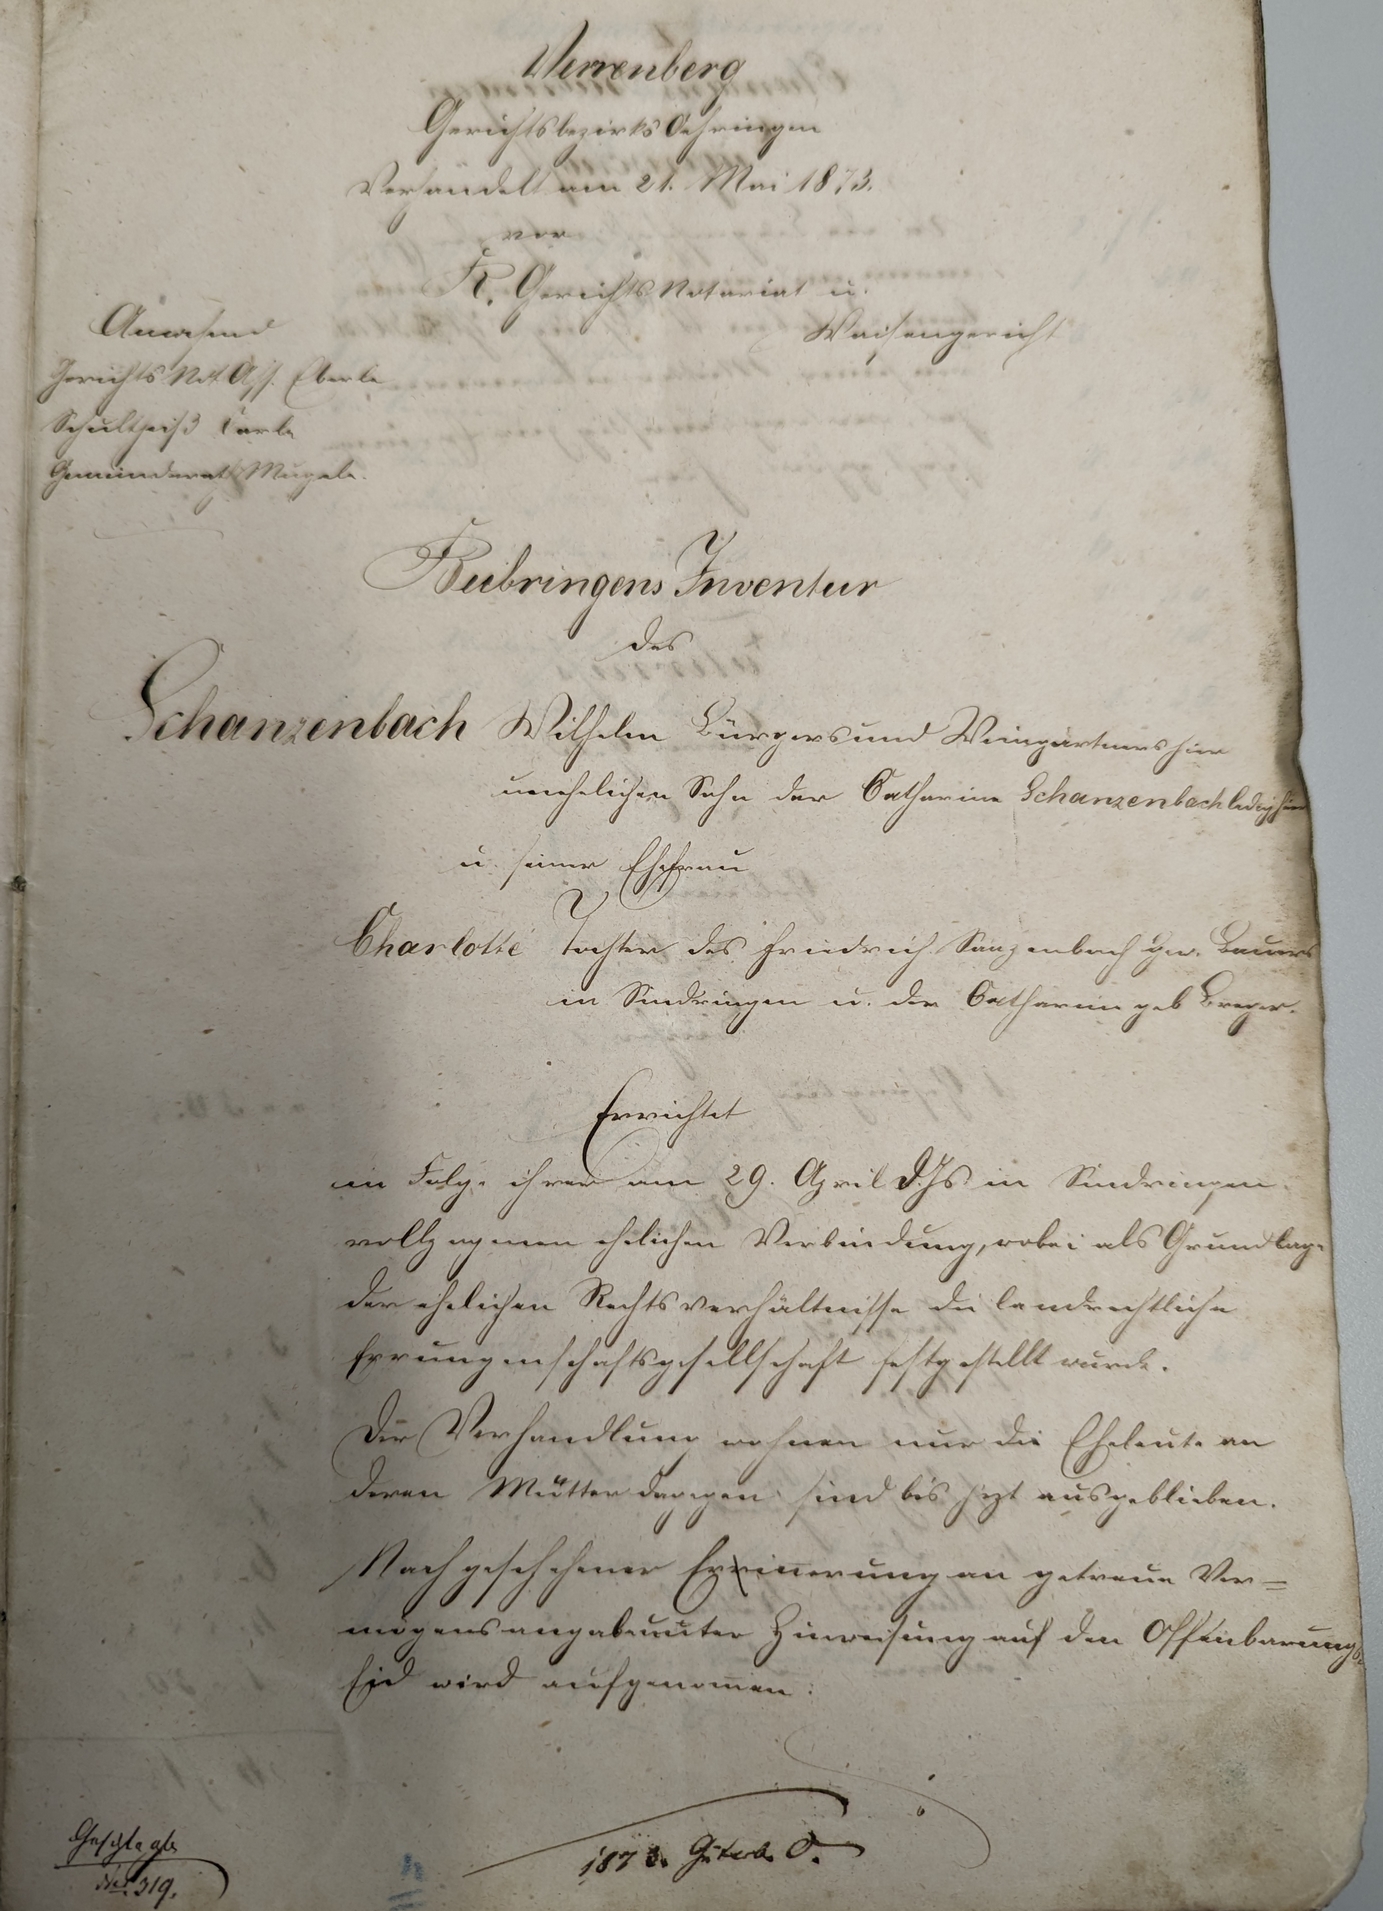 Verrenberg
Gerichtsbezirks Oehringen
Verhandelt am 21. Mai 1873.
vor
K. Gerichts Notariat u.
Waisengericht
Anwesend
Gerichts Not. Ass. Eberle
Schultheiß Carle
Gemeinderath Mugele.
Beibringens Inventur
des
Schanzenbach Wilhelm Bürgers und Weingärtners hier
unehelichen Sohn der Catharine Schanzenbach ledig hier
u. seiner Ehefrau
Charlotte Tochter des Friedrich Sanzenbach gew. Bauers
in Sindringen u. der Catharine geb
Errichtet
in Folge ihrer am 29. April d. Js in Sindringen
vollzogenen ehelichen Verbindung, wobei als Grundlage
der ehelichen Rechtsverhältnisse die landrechtliche
Errungenschaftsgesellschaft festgestellt wurde.
Der Verhandlung wohnen nur die Eheleute an
deren Mütter dagegen sind bis jezt ausgeblieben.
Nach geschehener Erinnerung an getreue Ver=
mögensangabe unter Hinweisung auf den Offenbarungs-
Eid wird aufgenommen:
1873. Güterb.
No. 319.